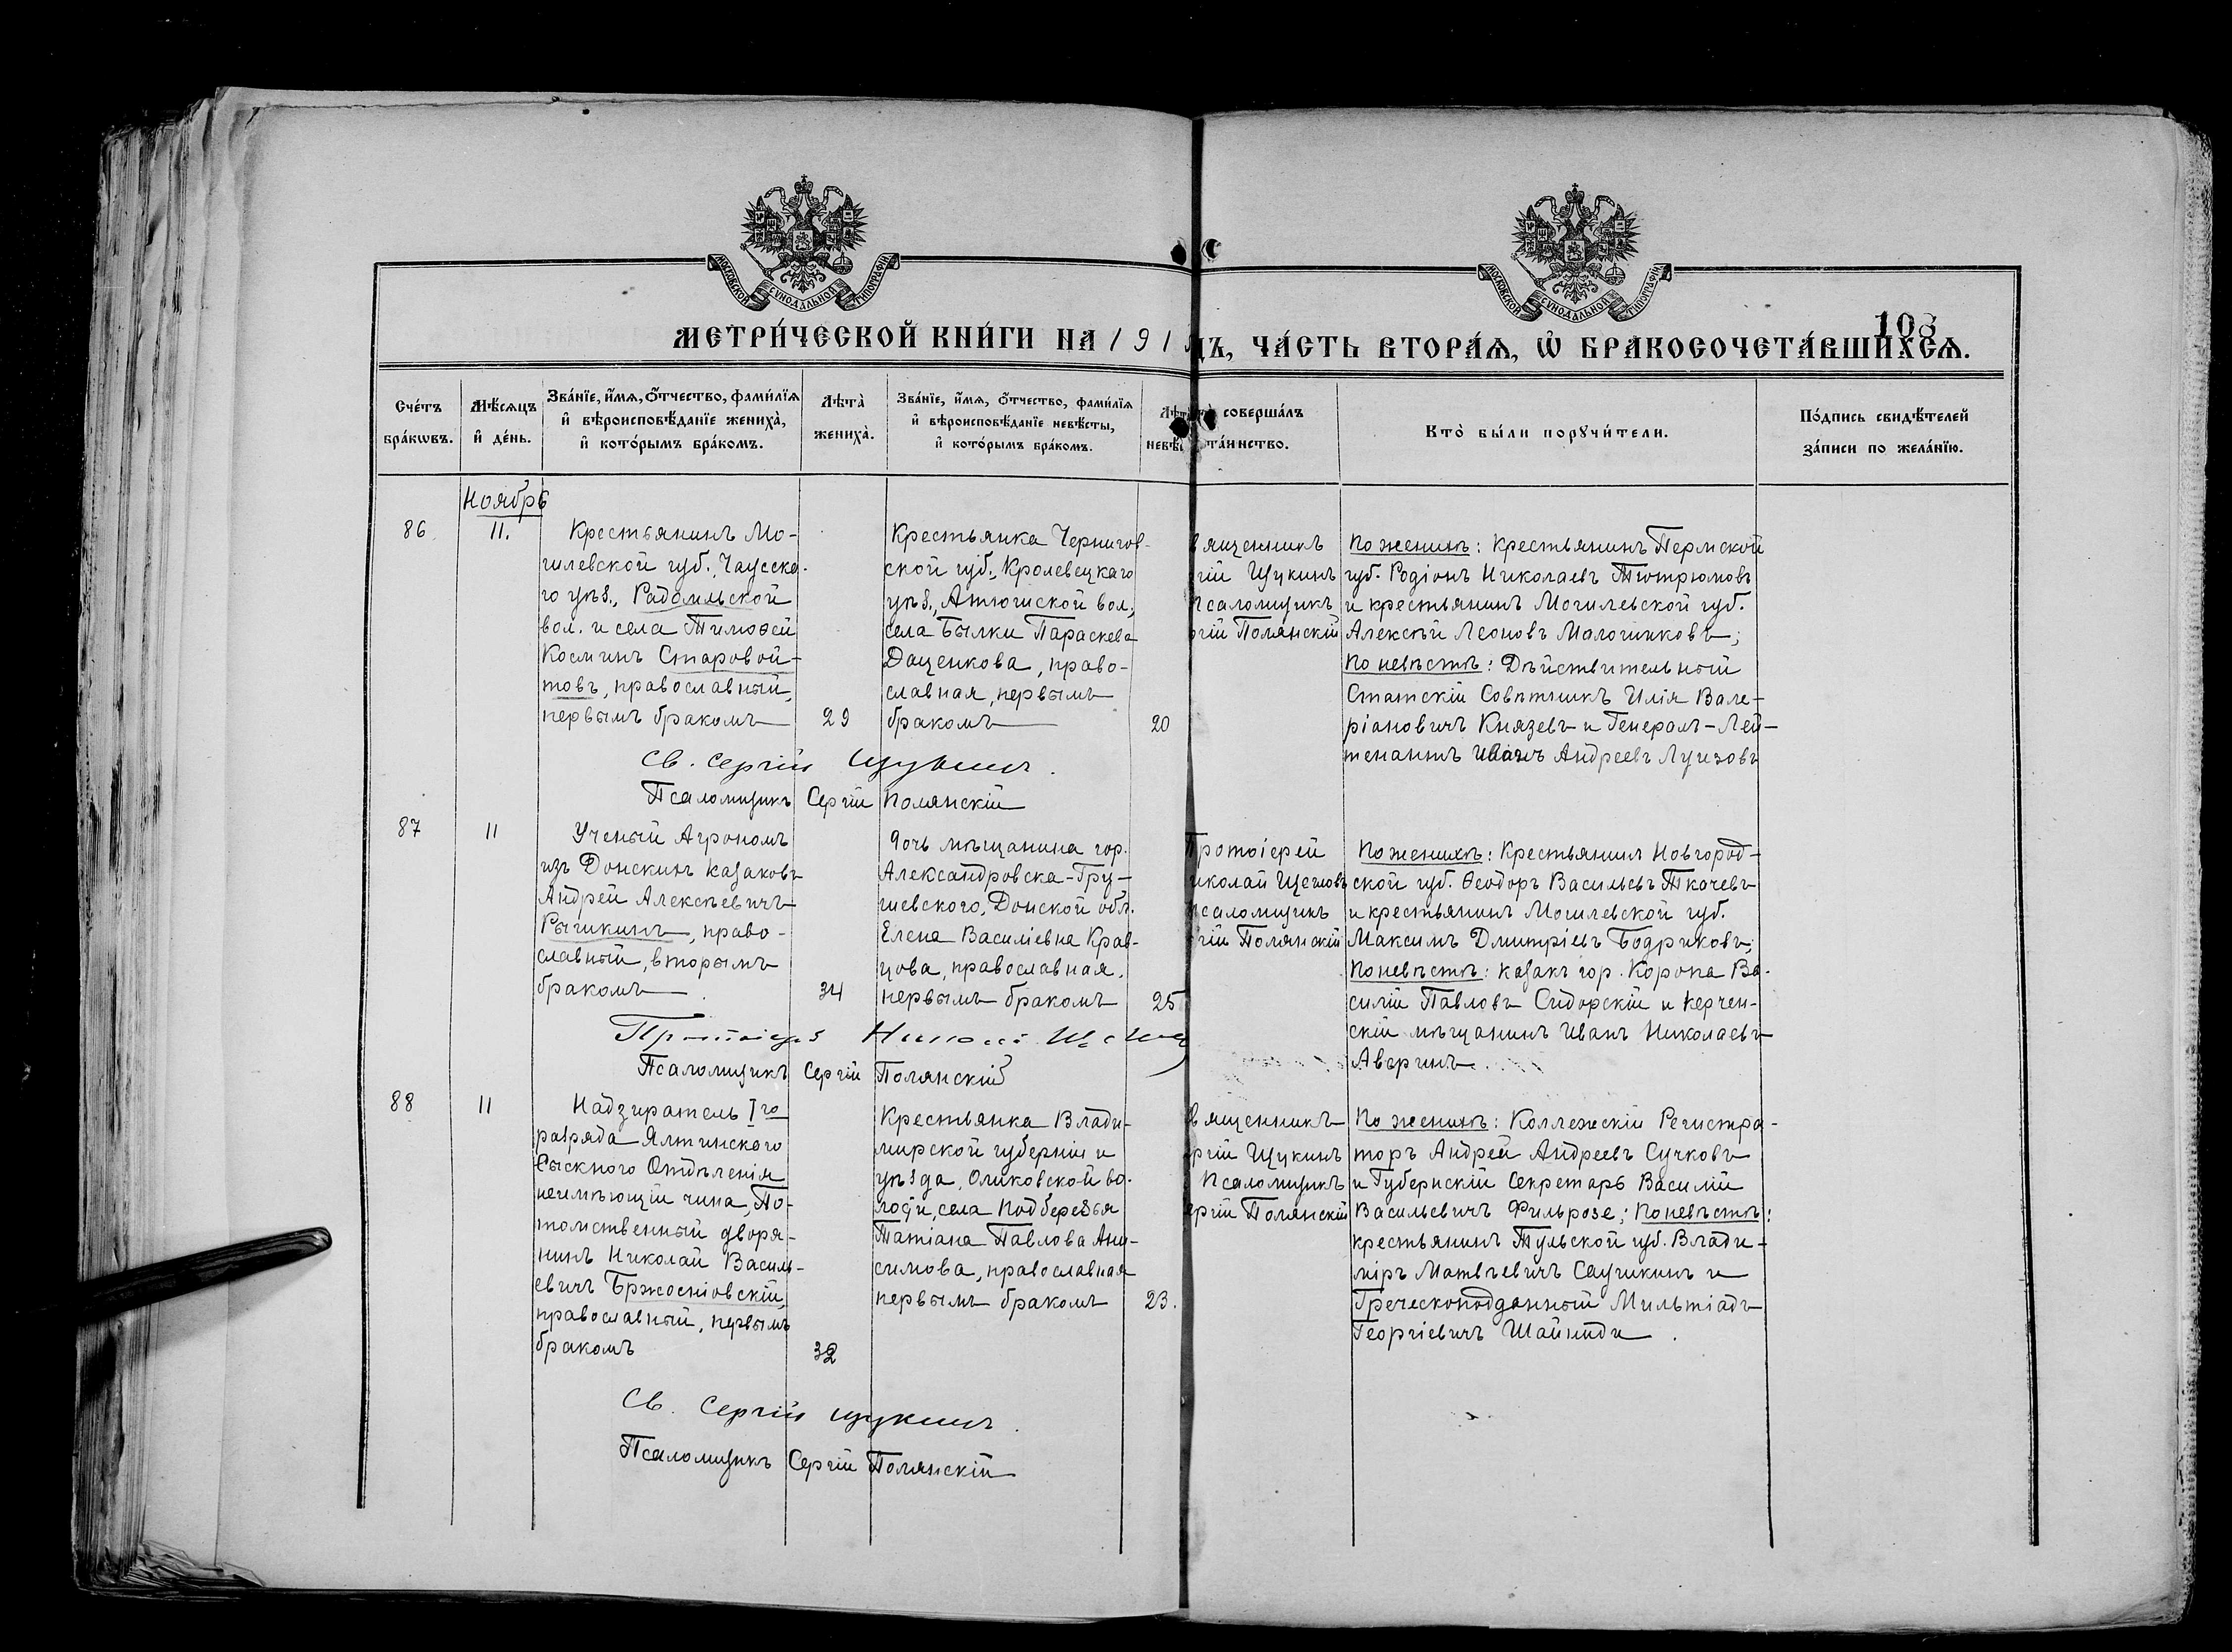 МОСКОВСКОЙ СѴНОДАЛЬНОЙ ТИПОГРАФІИ
МОСКОВСКОЙ СѴНОДАЛЬНОЙ ТИПОГРАФІИ
108
МЕТРИ́ЧЕСКОЙ КНИ́ГИ НА 191
Ъ, ЧА́СТЬ ВТОРА́Ѧ, Ѡ҆ БРАКОСОЧЕТА́ВШИХСѦ.
Сче́тъ бра́кѡвъ.
Мѣ́сѧцъ и҆ де́нь.
Зва́нїе, и҆́мѧ, ѻ҆́тчество, фами́лїѧ и҆ вѣроисповѣ́данїе жениха̀, и҆ кото́рымъ бра́комъ.
Лѣта̀ жениха̀.
Зва́нїе, и҆́мѧ, ѻ҆́тчество, фами́лїѧ и҆ вѣроисповѣ́данїе невѣ́сты, и҆ кото́рымъ бра́комъ.
Лѣт
невѣ
соверша́лъ
та́инство.
Кто̀ бы́ли порꙋчи́тели.
По́дпись свидѣ́телей
за́писи по жела́нїю.
Ноябрь
86
11.
Крестьянинъ Мо-
гилевской губ., Чаусска-
го уѣз., Радомльской
вол. и села Тимоѳей
Косминъ Старовой-
товъ, православный,
первымъ бракомъ
29
Крестьянка Чернигов-
ской губ., Кролевецкаго
уѣз., Атюшской вол.,
села Былки Параскева
Даценкова, право-
славная, первымъ
бракомъ
20
вященникъ
гій Щукинъ
псаломщикъ
ргій Полянскій
По женихѣ: крестьянинъ Пермской
губ. Родіонъ Николаевъ Тютрюмовъ
и крестьянинъ Могилевской губ.
Алексѣй Леоновъ Малошиковъ;
По невѣстѣ: Дѣйствительный
Статскій Совѣтникъ Илія Вале-
ріановичъ Князевъ и Генералъ-Лей-
тенантъ Иванъ Андреевъ Луизовъ
Св. Сергій Щукинъ.
Псаломщикъ Сергій Полянскій
87
11
Ученый Агрономъ
изъ Донскихъ казаковъ
Андрей Алексѣевичъ
Рычикинъ, право-
славный, вторымъ
бракомъ
34
Дочь мѣщанина гор.
Александровска-Гру-
шевского, Донской обл.
Елена Василіевна Крав-
цова, православная.
первымъ бракомъ
25
Протоіерей
иколай Щегловъ
псаломщикъ
гій Полянскій
По женихѣ: Крестьянинъ Новгород-
ской губ. Ѳеодоръ Васильевъ Ткачевъ
и крестьянинъ Могилевской губ.
Максимъ Дмитріевъ Бодриковъ;
По невѣстѣ: казакъ гор. Коропа Ва-
силій Павловъ Сидорскій и Керчен-
скій мѣщанинъ Иванъ Николаевъ
Аверинъ.
Протоіерей Николай
Псаломщикъ Сергій Полянскій
88
11
Надзиратель I го
разряда Ялтинского
Сыскного Отдѣленія
неимѣющій чина, По-
томственный дворя-
нинъ Николай Василь-
евичъ Бржосніовскій,
православный, первымъ
бракомъ
32
Крестьянка Влади-
мирской губерніи и
уѣзда, Оликовской во-
лости, села Подберезья
Татіана Павлова Ани-
симова, православная
первымъ бракомъ
23.
вященникъ
ргій Щукинъ
Псаломщикъ
ергій Полянскій
По женихѣ: Коллежскій Регистра-
торъ Андрей Андреевъ Сучковъ
и Губернскій Секретарь Василій
Васильевичъ Фильрозе; По невѣстѣ:
крестьянинъ Тульской губ. Влади-
міръ Матвѣевичъ Саушкинъ и
Греческоподданный Мильтіадъ
Георгіевичъ Шайниди.
Св. Сергій Щукинъ.
Псаломщикъ Сергій Полянскій